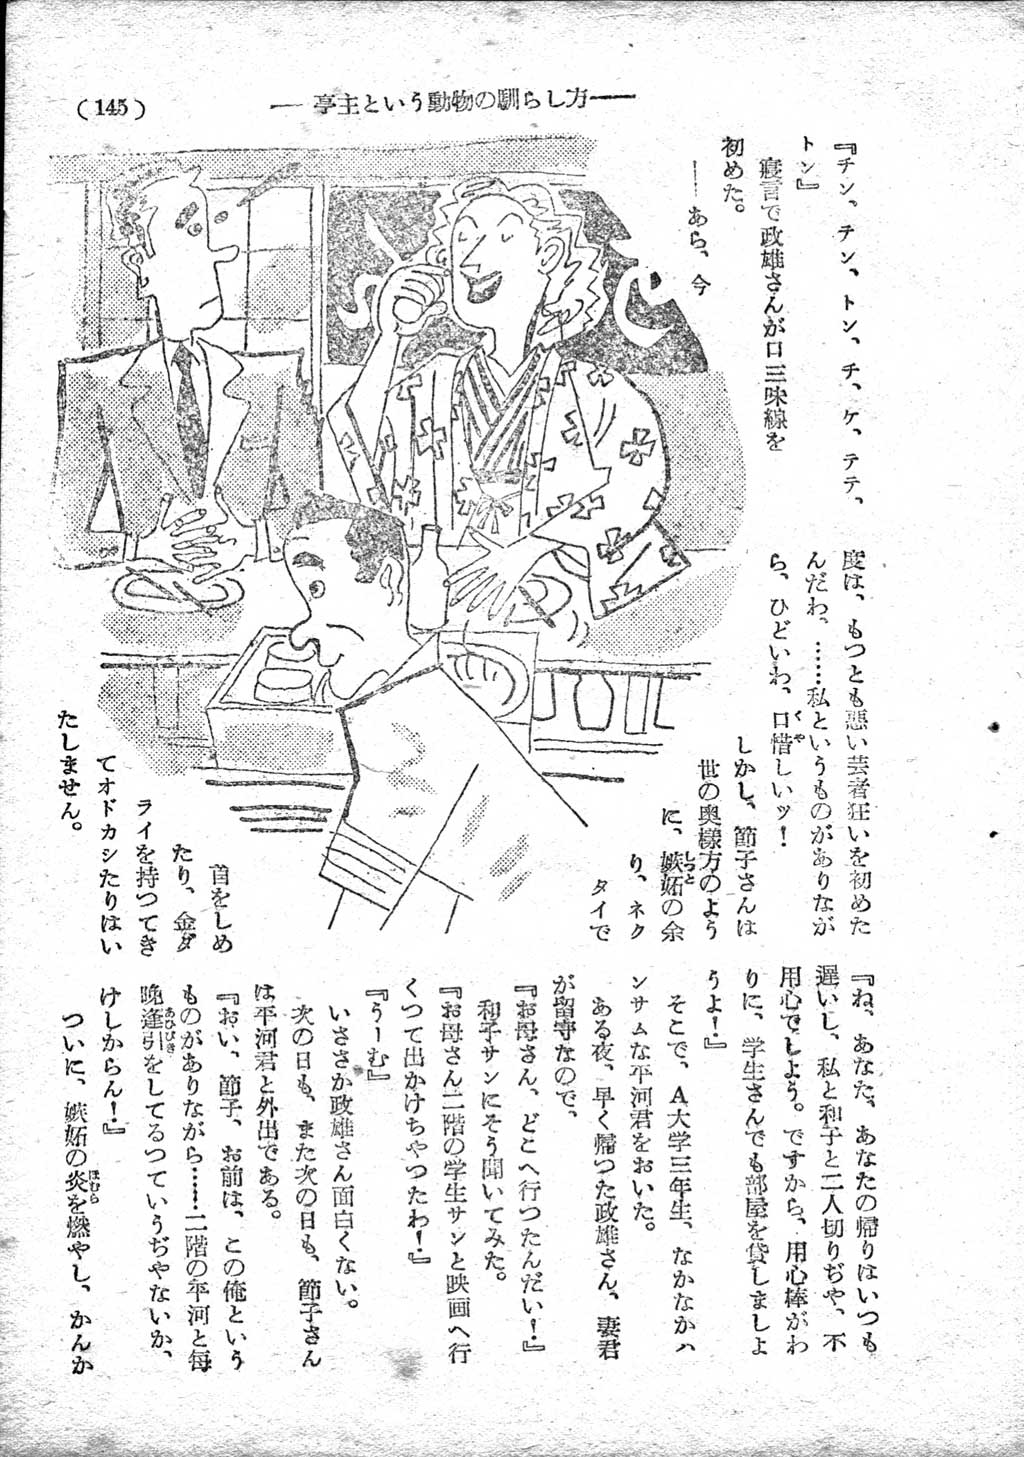 (145)
― 亭主という動物の馴らし方 ―
『チン、テン、トン、チ、ケ、テテ、
トン』
寝言で政雄さんが口三味線を
初めた。
― あら、今
度は、もつとも悪い芸者狂いを初めた
んだわ、……私というものがありなが
ら、ひどいわ、口惜しいッ！
くや
しかし、節子さんは
世の奥様方のよう
に、嫉妬の余
しつと
り、ネク
タイで
首をしめ
たり、金ダ
ライを持つてき
てオドカシたりはい
たしません。
『ね、あなた、あなたの帰りはいつも
遅いし、私と和子と二人切りぢや、不
用心でしよう。ですから、用心棒がわ
りに、学生さんでも部屋を貸しましよ
うよ！』
そこで、A大学三年生、なかなかハ
ンサムな平河君をおいた。
ある夜、早く帰つた政雄さん、妻君
が留守なので、
『お母さん、どこへ行つたんだい！』
和子サンにそう聞いてみた。
『お母さん二階の学生サンと映画へ行
くつて出かけちやつたわ！』
『うーむ』
いささか政雄さん面白くない。
次の日も、また次の日も、節子さん
は平河君と外出である。
『おい、節子、お前は、この俺という
ものがありながら……二階の平河と毎
晩逢引をしてるつていうぢやないか、
あひびき
けしからん！』
ついに、嫉妬の炎を燃やし、かんか
ほむら